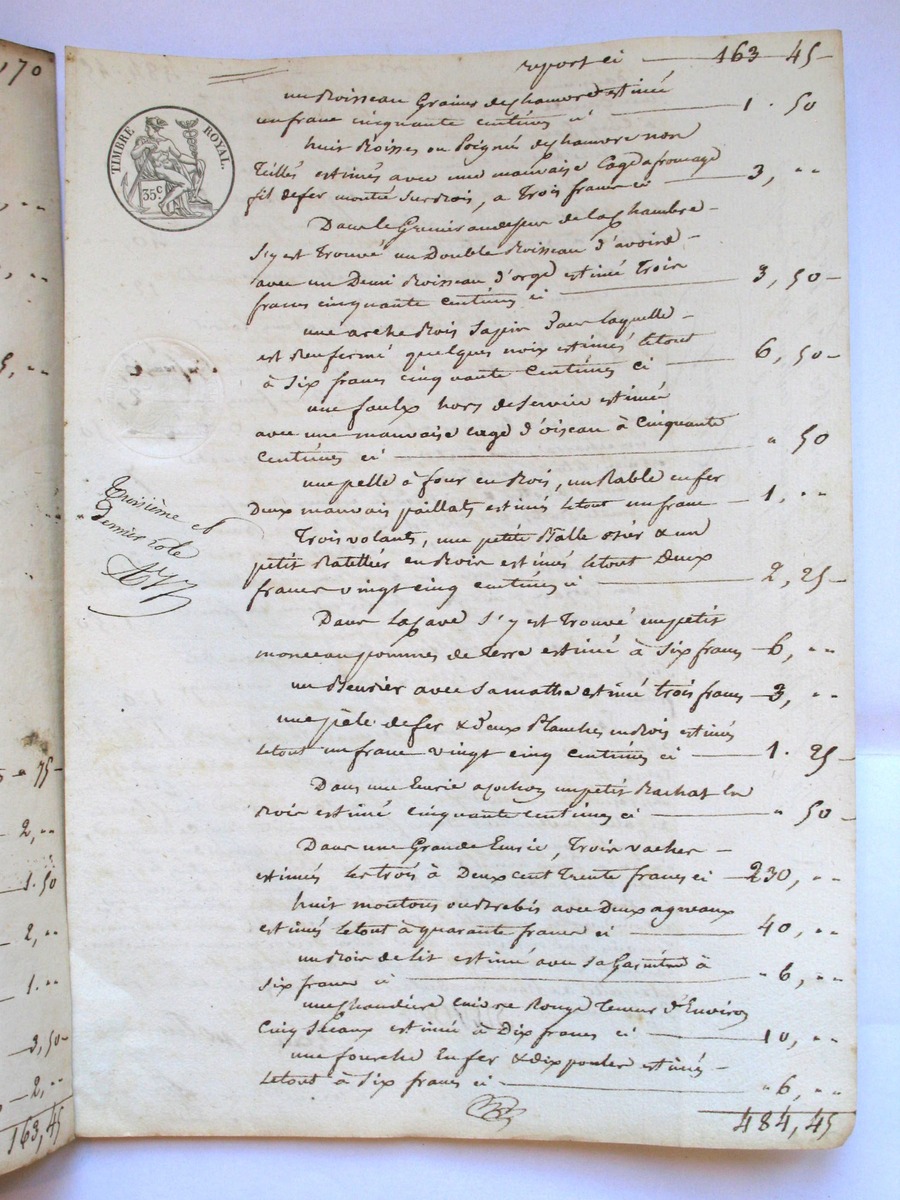 170
5, ..
75-
2, ..
1.50
2, ..
1...
3,50-
2, ..
163,45
TIMBRE ROYAL.
35 c.
Troisième et
Dernier role
report ci — 163 45-
un Boisseau Graines de chanvre estimé
un franc cinquante centimes ci — 1. 50
huit Boisses ou Poignés de chanvre non
Teillés estimés avec une mauvaise Cage a fromage
fil de fer monté sur Bois, a Trois francs ci — 3, ..
Dans le Grenier au dessus de la Chambre -
S'y est Trouvé un Double Boisseau d'avoine -
avec un Demi Boisseau d'orge estimé Trois
francs cinquante centimes ci — 3, 50-
une arche Bois Sapin Dans laquelle -
est Renfermé quelques noix estimés le tout
à Six francs cinquante Centimes ci — 6, 50-
une faulx hors de Service estimée
avec une mauvaise cage d'oiseau à Cinquante
Centimes ci — " 50
une pelle à four en Bois, un Rable en fer
Deux mauvais paillats estimés le tout un franc — 1, ..
Trois volants, une petite Balle osier & un
petit Ratellier en Bois estimés le tout Deux
francs vingt cinq centimes ci — 2, 25-
Dans La Cave S'y est Trouvé un petit
monceau pommes de Terre estimé à Six francs — 6, ..
un Beurier avec sa estimé trois francs — 3, ..
une pèle de fer & Deux Planches en Bois estimés
le tout un franc vingt cinq centimes ci — 1. 25-
Dans une Eurie a Cochon un petit Bachat en
Bois estimé cinquante centimes ci — " 50-
Dans une Grande Eurie, Trois vaches -
estimés les trois à Deux cent Trente francs ci — 230, ..
huit moutons ou Brebis avec Deux agneaux
estimés le tout à quarante francs ci — 40, ..
un Bois de Lit estimé avec sa Garniture à
Six francs ci — " 6, ..
une Chaudière cuivre Rouge Teneur d'Environ
Cinq Seaux estimée à Dix francs ci — 10, ..
une fourche en fer & dix poules estimés -
le tout à Six francs ci — " 6, ..
484,45